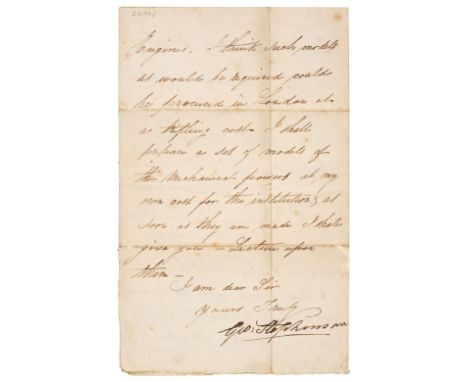 Engines. I think such models
as would be required could
be procured in London at
a trifling cost. I shall
prepare a set of models of
the Mechanical powers at my
own cost for the institution & as
soon as they are made I shall
give you a Lecture upon
them —
I am dear Sir
yours Truly
Geo: Stephenson